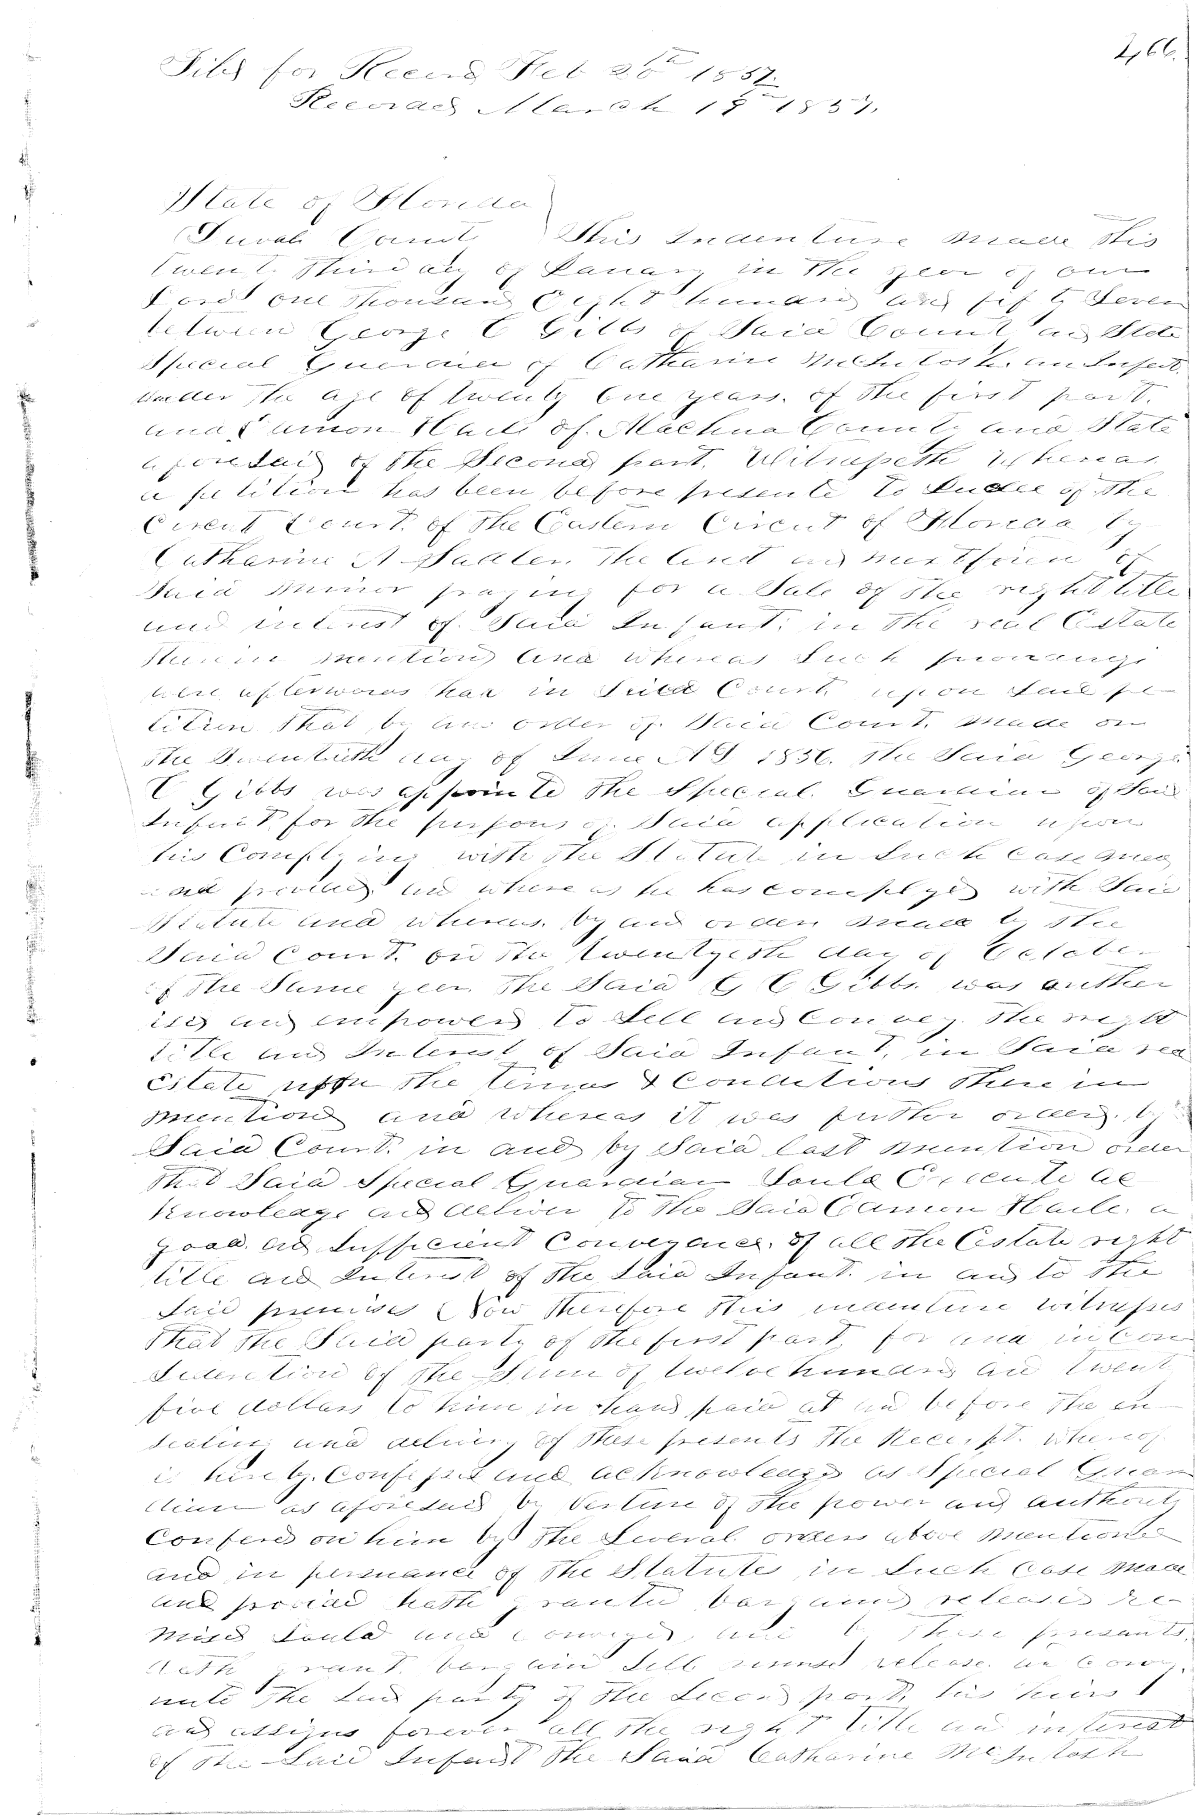 466.
Filed for Record Feb 20th 1857.
Recorded March 19th 1857.
State of Florida
Duval County This Indenture made this
twenty third day of January in the year of our
Lord one thousand Eight hundred and fifty Seven
between George C Gibbs of Said County and State
Special Guardian of Catharine McIntosh an Infant
under the age of twenty one years. of the first part.
and Eamon Haile of. Alachua County and State
aforesaid of the Second part. Witnesseth Whereas
a petition has been before presente to Judge of the
Circuit Court. of the Eastern Circut of Florida by
Catharine A Sadler. the Aunt and next friend of
Said Minor praying for a Sale of the right title
and interest of. Said Infant: in the real Estate
therein mention and whereas Such proceedings
were afterwards had in Said Court upon Said pe
tition that by an order of Said Court. made on
the twentieth day of June A D 1856. the Said George
C Gibbs was appointe the Special. Guardian of Said
Infant. for the purpous of. Said application upon
his Complying with the Statute in Such case made
and provided and whereas he has complyed with Said
Statute and whereas. by an order made by the
Said Court. on the twentyeth day of October
of the Same year The Said G C Gibbs. was author
ised and empowerd to Sell and Convey. the right
title and Interest of Said Infant, in Said real
Estate upon the terms & Conditions there in
mention and whereas it was further orderd. by
Said Court. in and by Said last mention order
that Said Special Guardian Sould Execute ac
knowledge and deliver to the Said Eamon Haile. a
good. and Sufficient Conveyance. of all the Estate right
title and Interest of the Said Infant. in and to the
Said premises Now therefore this indenture witnesses
that the Said party of the first part, for and in con
sideration of the Sum of twelve hundred and twenty
five dollars to him in hand paid at and before the en
sealing and delivery of these presents the Receipt. whereof
is hereby. Confessed and acknowledged as Special Guar
dian as aforesaid by Vertue of the power and authority
Confered on him by the Several orders above mentioned
and in persuance of the Statute in Such Case made
and provid hath granted bargained released re
mised Sould and conveyed, and by these presants.
doth grant. bargain Sell remised release. and convey
unto the Said party of the Second part, his heirs
and assigns forever all the right title and interest
of the Said Infant the Said Catharine McIntosh